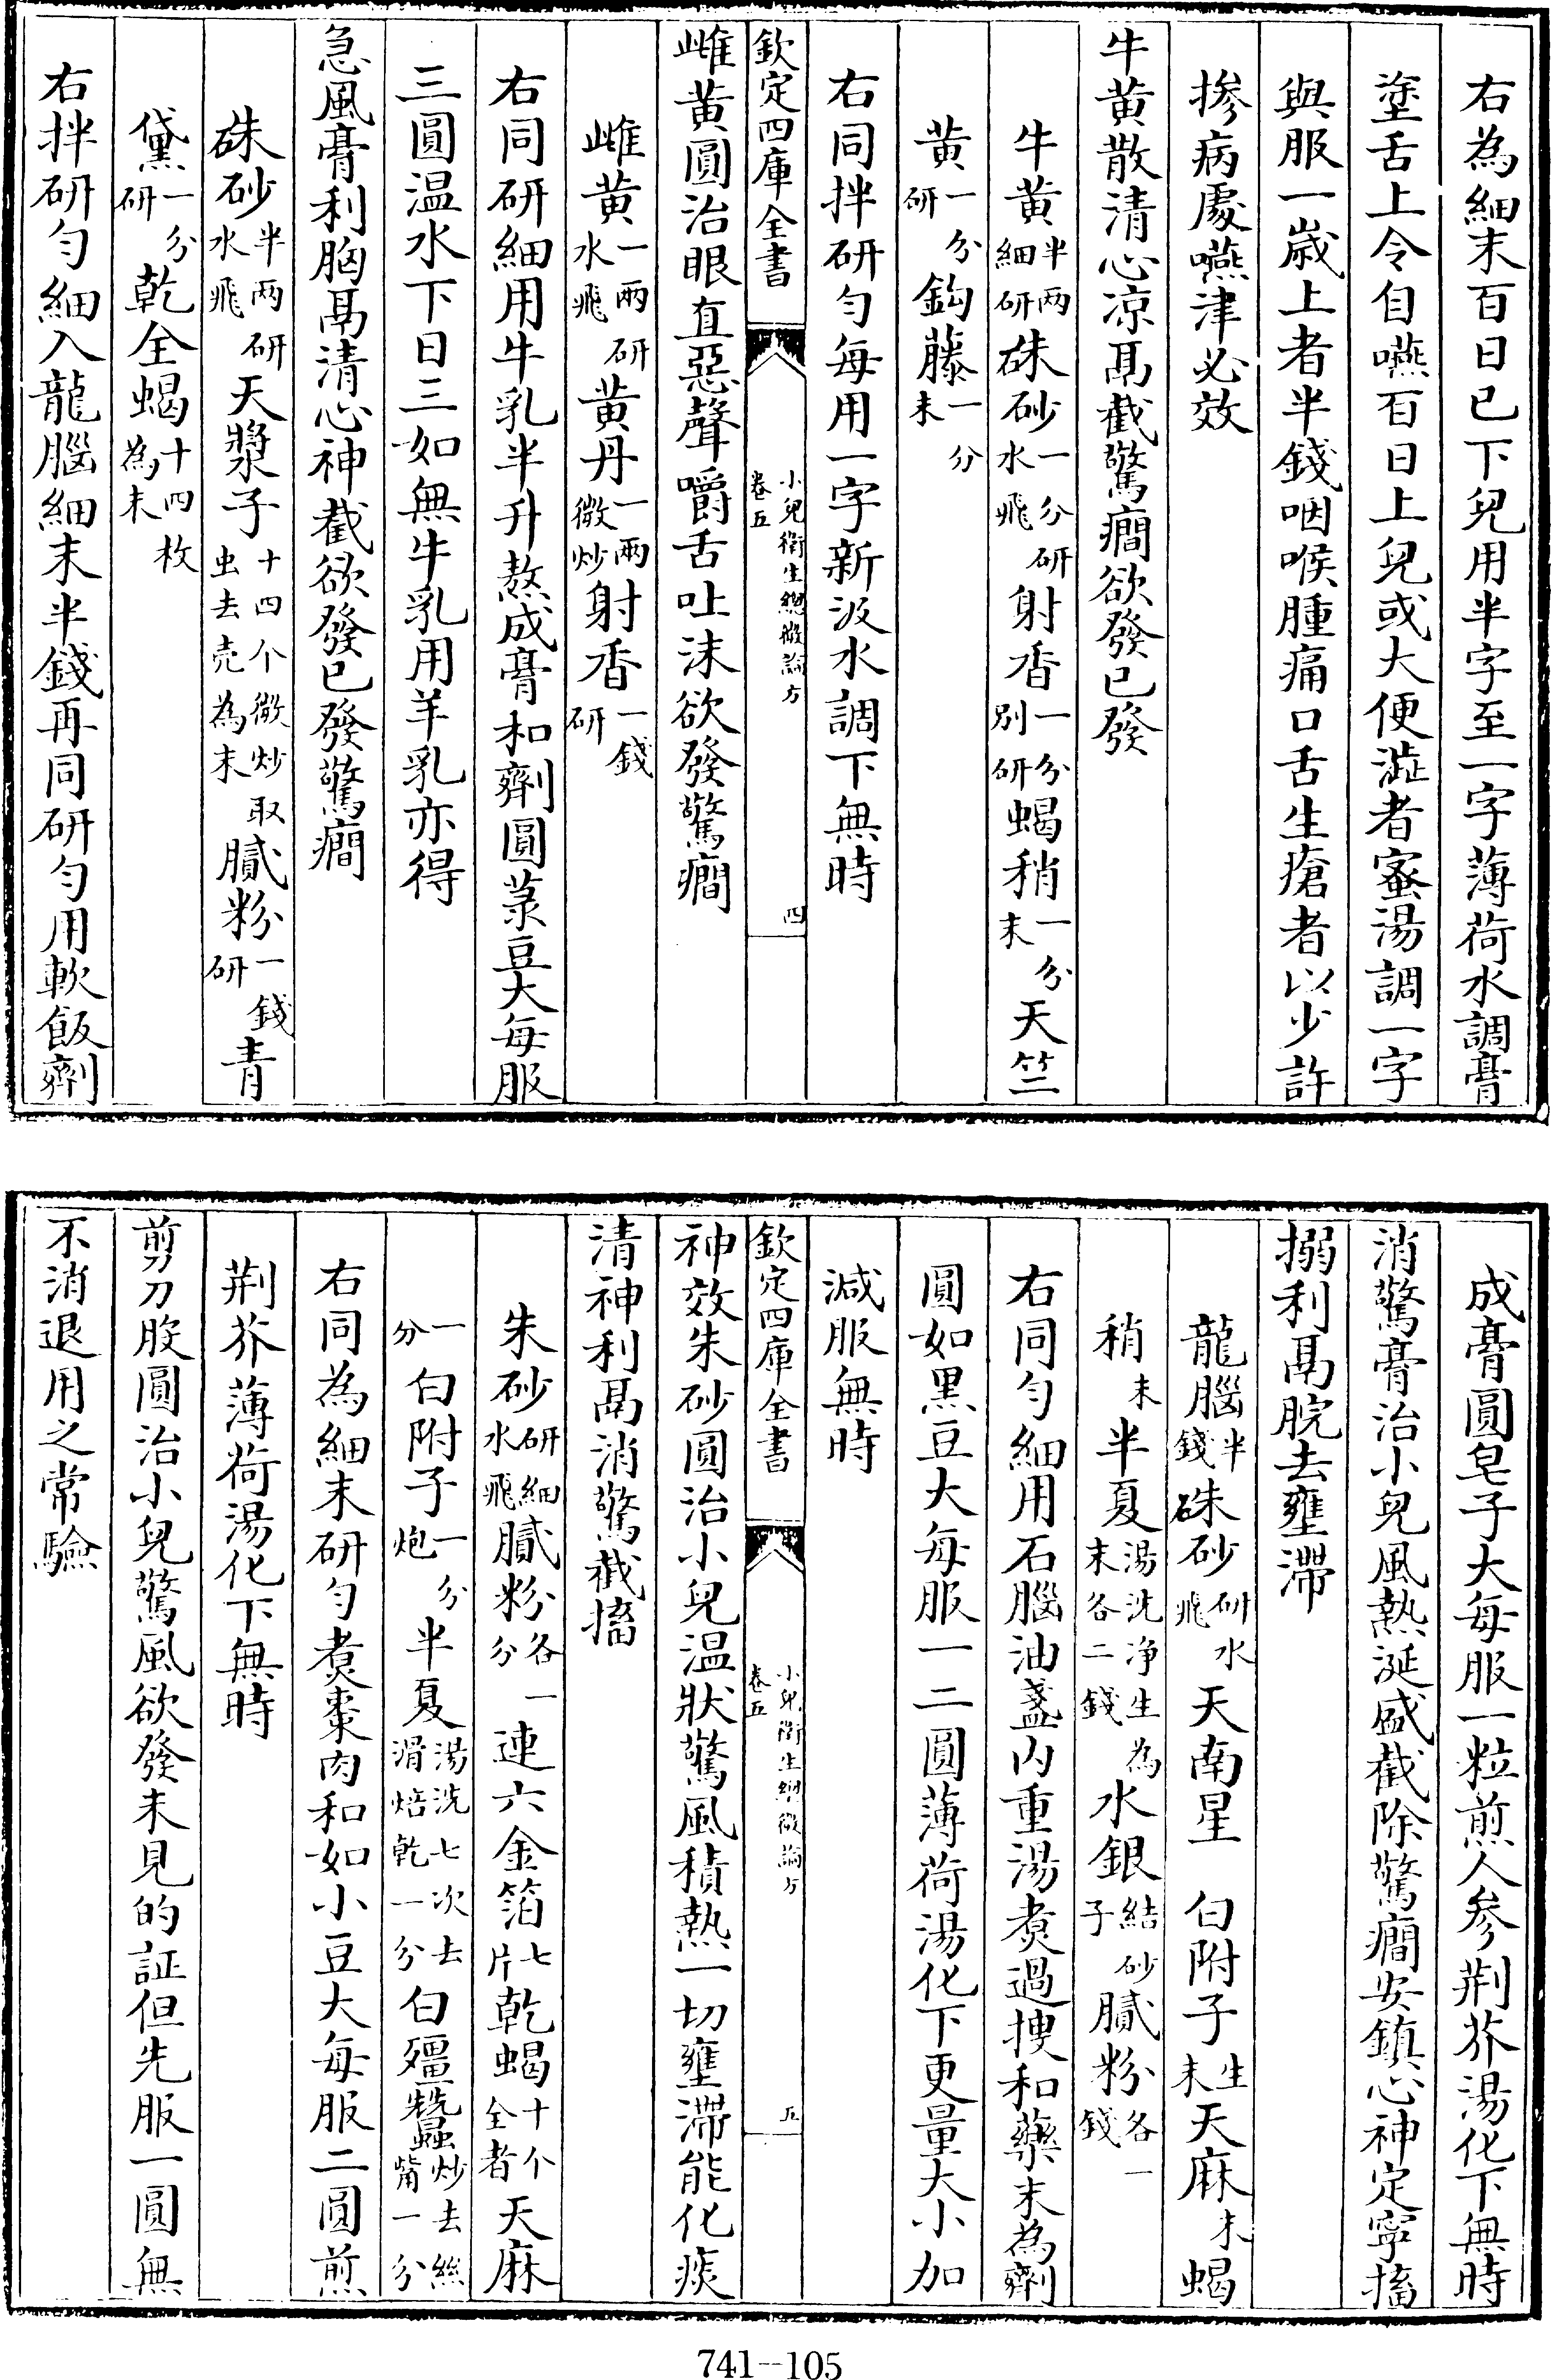 右為細末百日已下兒用半字至一字薄荷水調膏
塗舌上令自嚥百日上兒或大便澁者蜜湯調一字
與服一歲上者半錢咽喉腫痛口舌生瘡者以少許
摻病處嚥津必效
牛黄散清心凉膈截驚癎欲發已發
牛黄半两細研硃砂一分研水飛射香一分别研蝎稍一分末天竺
黄一分研鈎藤一分末
右同拌研勻每用一字新汲水調下無時
欽定四庫全書 小兒衛生總微論方卷五 四
雌黄圓治眼直惡聲嚼舌吐沫欲發驚癎
雌黄一兩研水飛黄丹一兩微炒射香一錢研
右同研細用牛乳半升熬成膏和劑圓菉豆大每服
三圓温水下日三如無牛乳用羊乳亦得
急風膏利胸膈清心神截欲發已發驚癎
硃砂半两研水飛天漿子十四个微炒取虫去壳為末膩粉一錢研青
黛一分研乾全蝎十四枚為末
右拌研勻細入龍腦細末半錢再同研勻用軟飯劑
成膏圓皂子大每服一粒煎人參荆芥湯化下無時
消驚膏治小兒風熱涎盛截除驚癎安鎮心神定寧搐
搦利膈脘去壅滯
龍腦半錢硃砂研水飛天南星 白附子生末天麻末蝎
稍末半夏湯洗净生為末各二錢水銀結砂子膩粉各一錢
右同勻細用石腦油盞内重湯煑過搜和藥末為劑
圓如黑豆大每服一二圓薄荷湯化下更量大小加
減服無時
欽定四庫全書 小兒衛生總微論方卷五 五
神效朱砂圓治小兒温狀驚風積熱一切壅滯能化痰
清神利膈消驚截搐
朱砂研細水飛膩粉各一分連六金箔七片乾蝎十个全者天麻
一分白附子一分炮半夏湯洗七次去滑焙乾一分白殭蠶炒去絲觜一分
右同為細末研勻煑棗肉和如小豆大每服二圓煎
荆芥薄荷湯化下無時
剪刀股圓治小兒驚風欲發未見的証但先服一圓無
不消退用之常驗
741--105